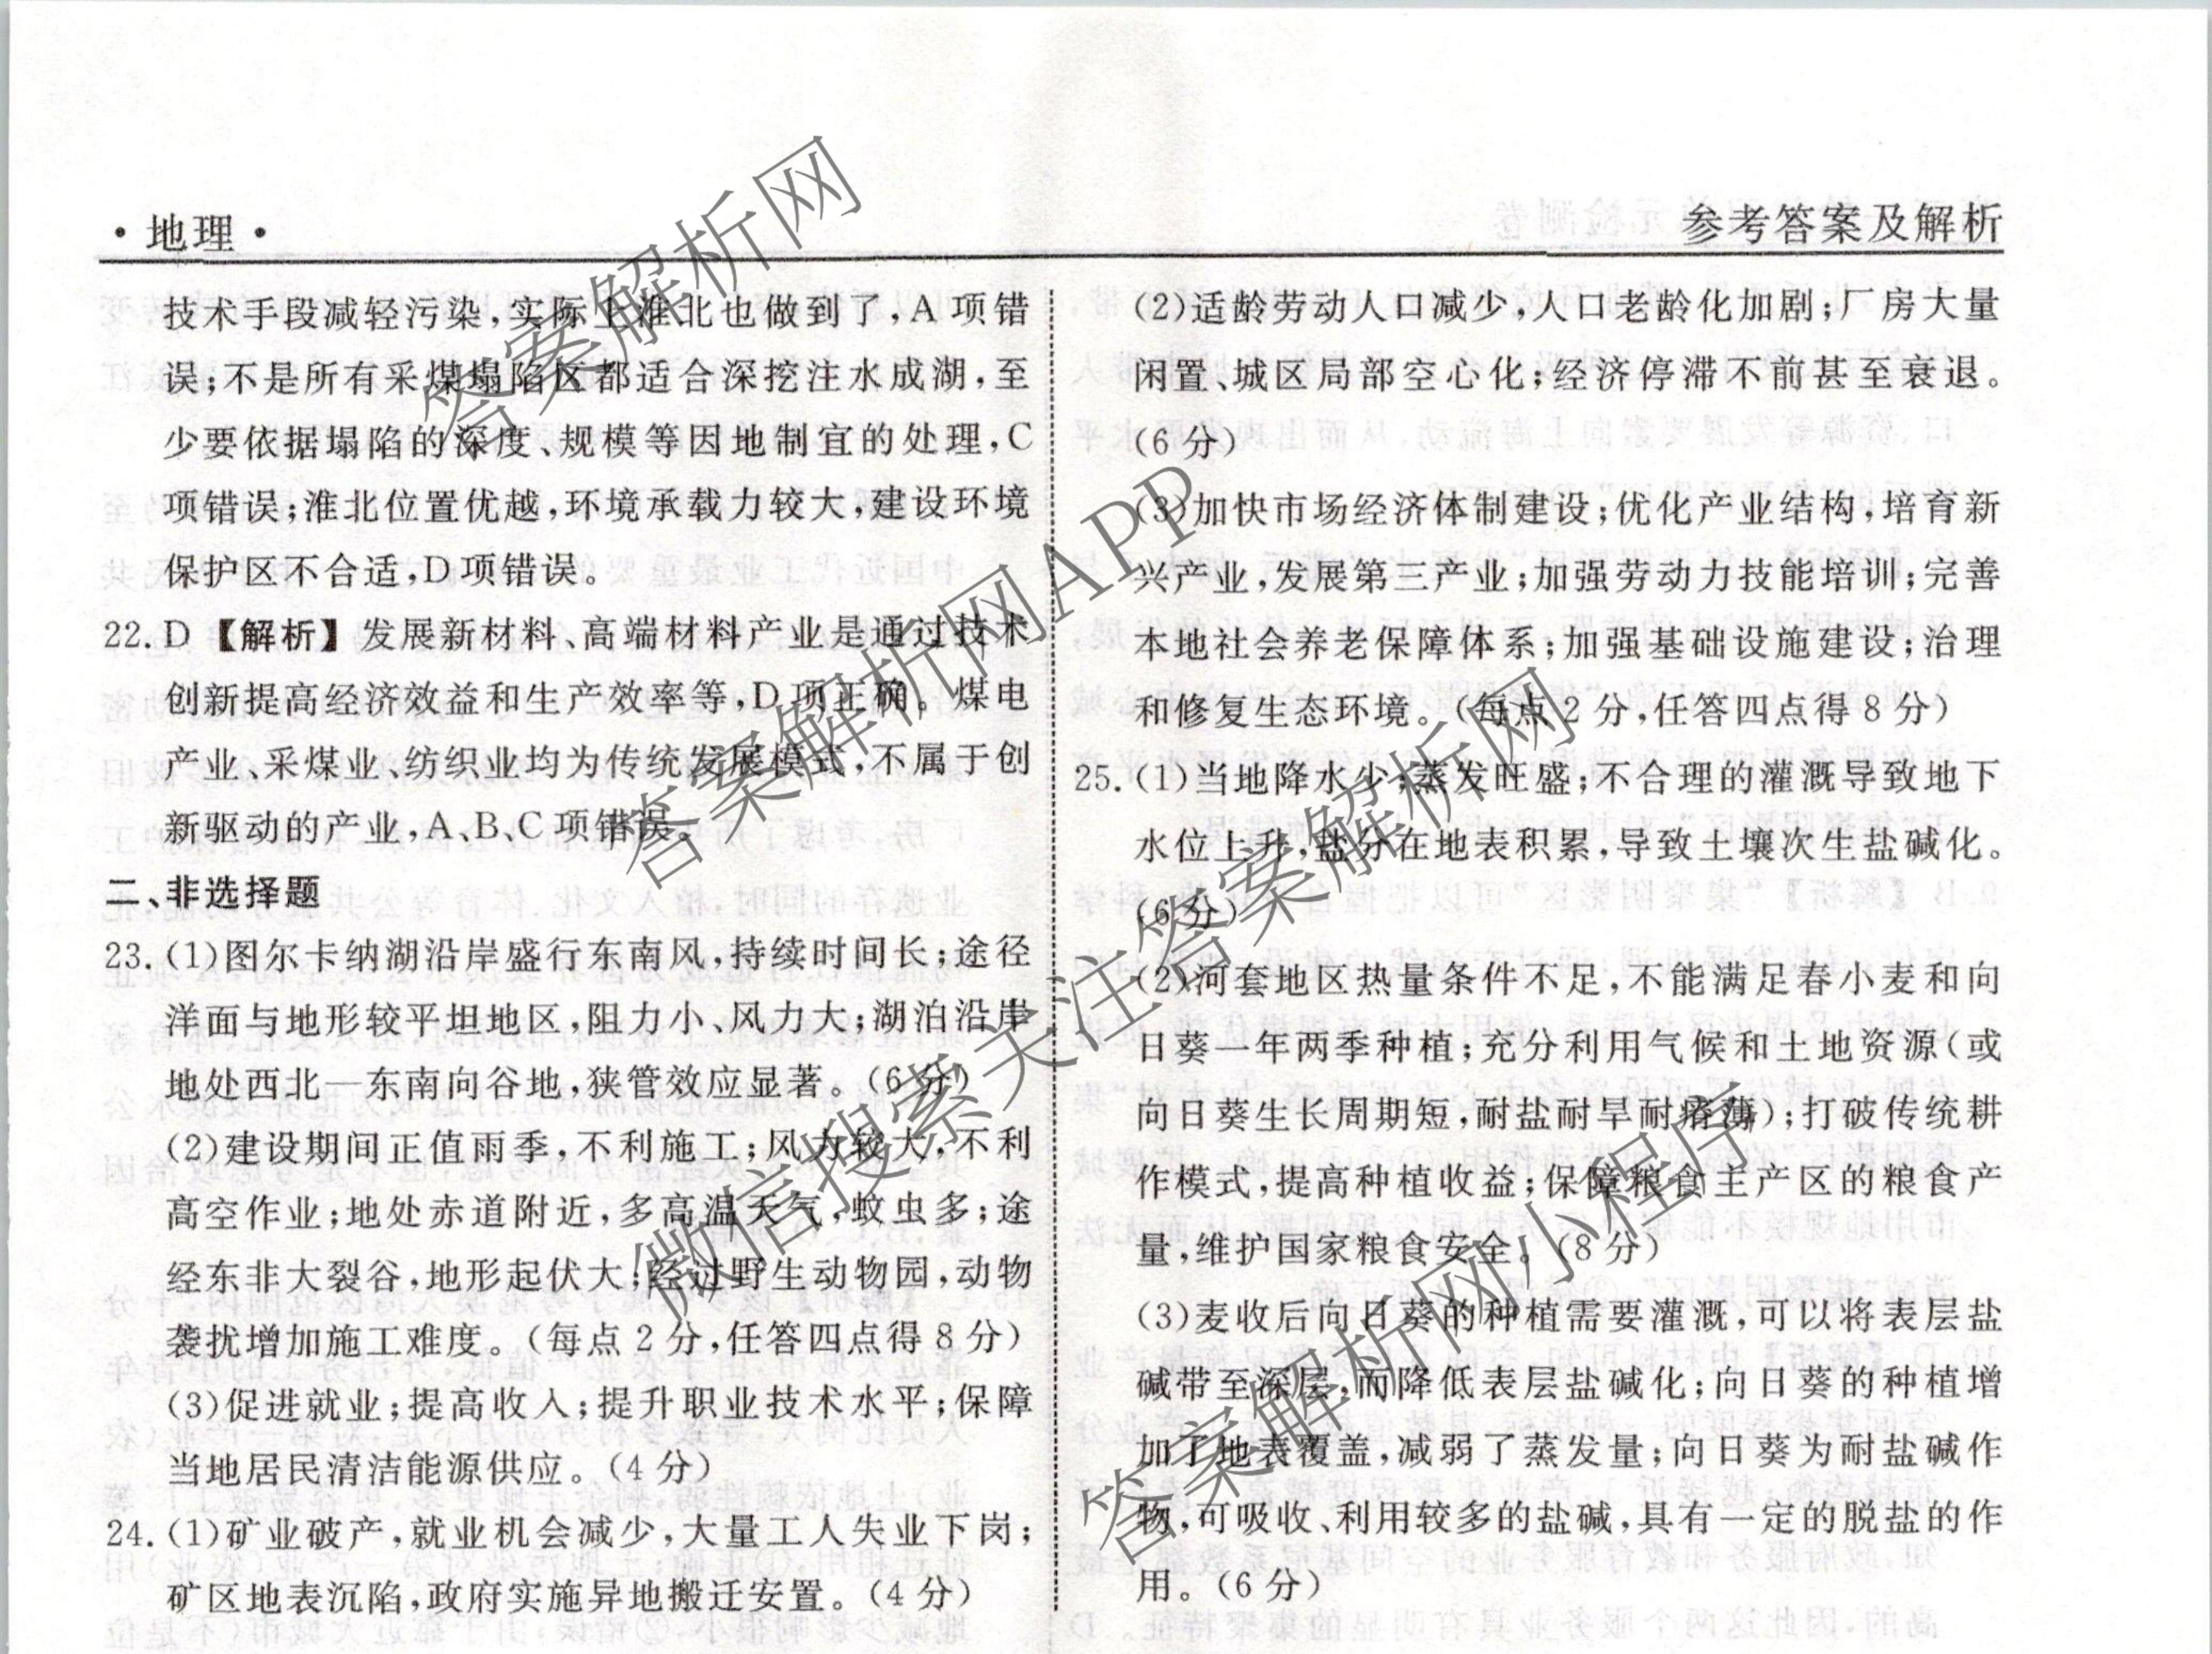 ·地理·
参考答案及解析
技术手段减轻污染,实际上淮北也做到了,A项错
误;不是所有采煤塌陷区都适合深挖注水成湖,至
少要依据塌陷的深度、规模等因地制宜的处理,C
项错误;淮北位置优越,环境承载力较大,建设环境
保护区不合适,D项错误。
22. D 【解析】发展新材料、高端材料产业是通过技术
创新提高经济效益和生产效率等,D项正确。煤电
产业、采煤业、纺织业均为传统发展模式,不属于创
新驱动的产业,A、B、C项错误。
二、非选择题
23. (1)图尔卡纳湖沿岸盛行东南风,持续时间长;途径
洋面与地形较平坦地区,阻力小、风力大;湖泊沿岸
地处西北—东南向谷地,狭管效应显著。(6分)
(2)建设期间正值雨季,不利施工;风力较大,不利
高空作业;地处赤道附近,多高温天气,蚊虫多;途
经东非大裂谷,地形起伏大;经过野生动物园,动物
袭扰增加施工难度。(每点2分,任答四点得8分)
(3)促进就业;提高收入;提升职业技术水平;保障
当地居民清洁能源供应。(4分)
24. (1)矿业破产,就业机会减少,大量工人失业下岗;
矿区地表沉陷,政府实施异地搬迁安置。(4分)
(2)适龄劳动人口减少,人口老龄化加剧;厂房大量
闲置、城区局部空心化;经济停滞不前甚至衰退。
(6分)
(3)加快市场经济体制建设;优化产业结构,培育新
兴产业,发展第三产业;加强劳动力技能培训;完善
本地社会养老保障体系;加强基础设施建设;治理
和修复生态环境。(每点2分,任答四点得8分)
25. (1)当地降水少;蒸发旺盛;不合理的灌溉导致地下
水位上升,盐分在地表积累,导致土壤次生盐碱化。
(6分)
(2)河套地区热量条件不足,不能满足春小麦和向
日葵一年两季种植;充分利用气候和土地资源(或
向日葵生长周期短,耐盐耐旱耐瘠薄);打破传统耕
作模式,提高种植收益;保障粮食主产区的粮食产
量,维护国家粮食安全。(8分)
(3)麦收后向日葵的种植需要灌溉,可以将表层盐
碱带至深层,而降低表层盐碱化;向日葵的种植增
加了地表覆盖,减弱了蒸发量;向日葵为耐盐碱作
物,可吸收、利用较多的盐碱,具有一定的脱盐的作
用。(6分)
答案解析网
答案解析网APP
微信搜索关注答案解析网
答案解析网小程序